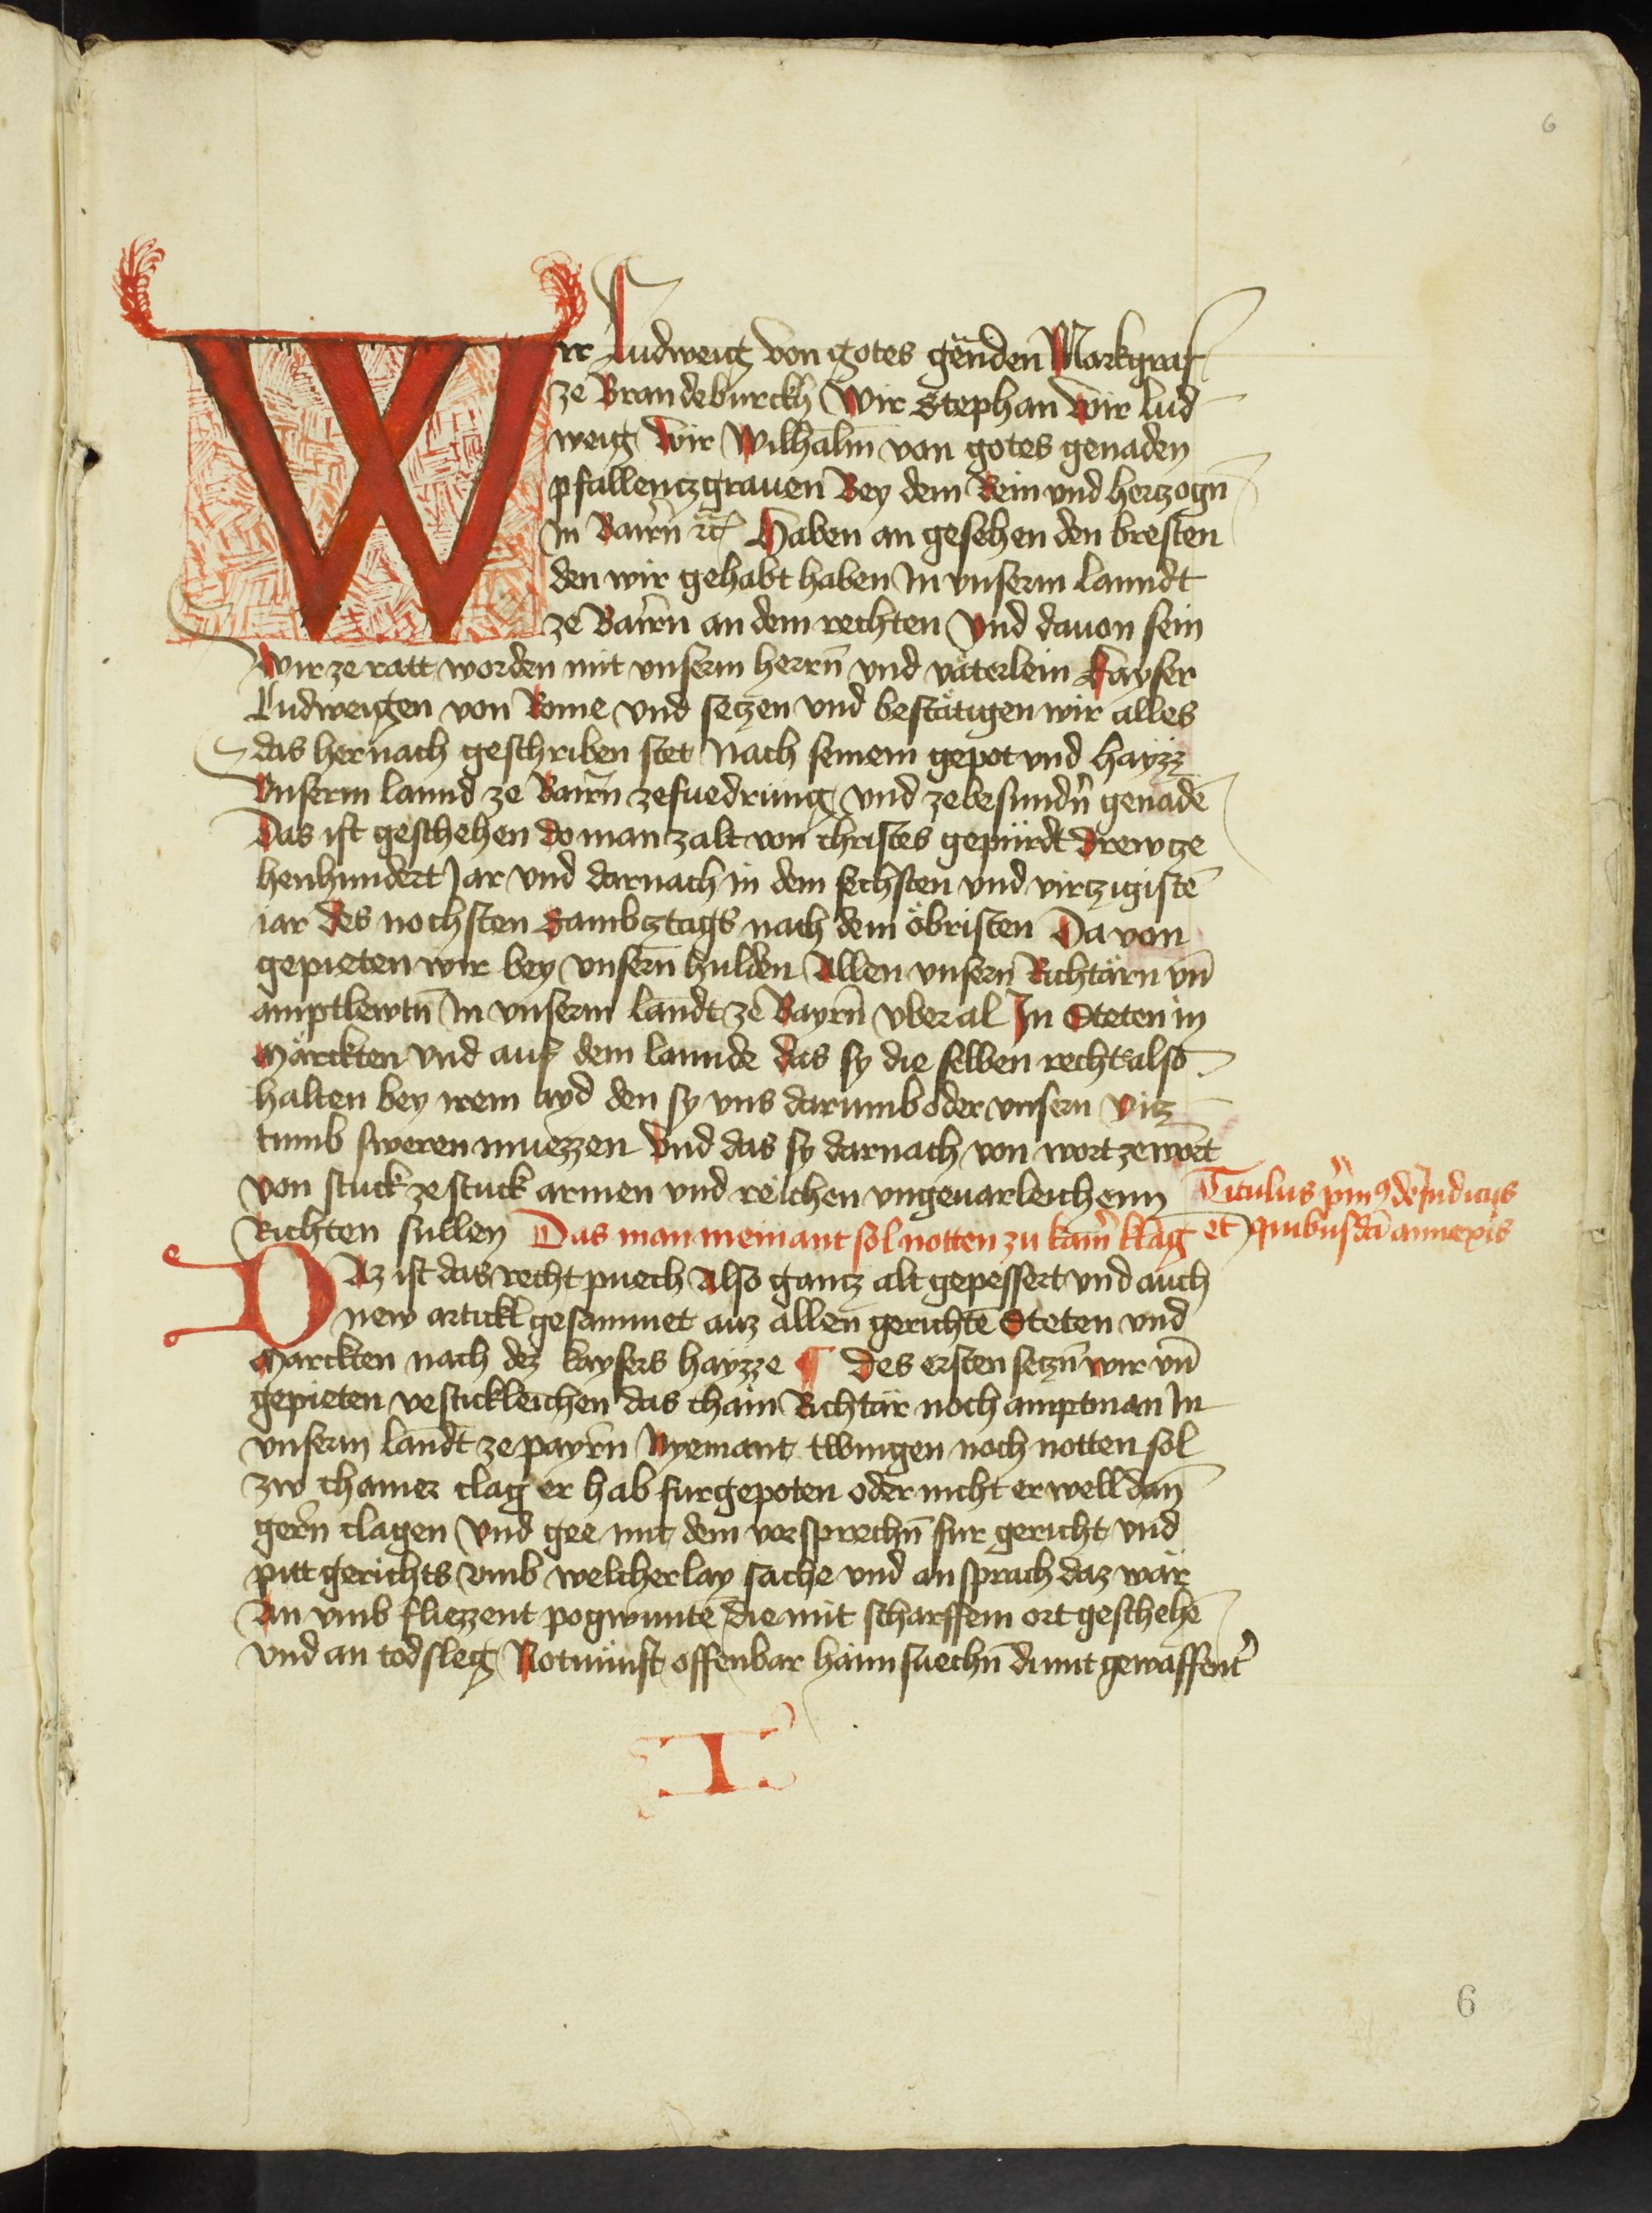 6
Wir Ludweig von gotes genden Markgraf
ze Brandeburckh Wir Stephan Wir Lud
weig Wir Wilhalm von gotes genaden
pfallenczgrauen Bey dem Rein vnd herczogn̄
in Bairn̄ ꝛc Haben an gesehen den bresten
den wir gehabt haben In vnserm lanndt
ze Bairn an dem rechten Vnd dauon sein
Wir ze ratt worden mit vnserm herrn̄ vnd väterlein Kayser
Ludweigen von Rome Vnd seczen vnd bestätigen wir alles
das hernach geschriben stet Nach seinem gepot vnd hayzz
Vnserm lannd ze Bairn̄ zefuedrung vnd zebesundn̄ genadē
Das ist geschehen do man zalt von christes gepürdt Drewcze
henhundert Jar vnd darnach in dem sechsten vnd virczigistē
jar des nochsten Sambcztags nach dem öbristen Da von
gepieten wir bey vnsern̄ hulden Allen vnsern̄ Richtärn vn̄
amptlewtn̄ In vnserm landt ze Bayrn̄ vber al In Steten in
Märckten vnd auf dem lannde das sy die selben recht also
halten bey irem ayd den sy vns darumb oder vnsern vicz
tumb sweren muezzen Vnd das sy darnach von wort ze wort
von stuck ze stuck armen vnd reichen vngeuarleichenn Titulus prim⁹ de Judicijs
Richten sullen Das man niemant sol notten zu kam̄ klag et quibusdā annexis
DAz ist das recht puech Also gancz alt gepessert vnd auch
new artickl gesammet auz allen gerichtē Steten vnd
Marckten nach dez kaysers hayzze ¶ Des ersten seczn̄ wir vn̄
gepieten vestickleichen das chain Richtär noch amptman In
vnserm landt ze payrn Nyemant twingen noch notten sol
zw chamer clag er hab furgepoten oder nicht er well dan̄
gern clagen Vnd gee mit dem vorsprechn̄ fur gericht vnd
pitt gerichts vmb welcherlay sache vnd ansprach daz wär
An vmb fliezzent pogwunte die mit scharffem ort geschehē
vnd an todsleg Notnunft offenbar haimsuechn̄ di mit gewaffent̄
I
6